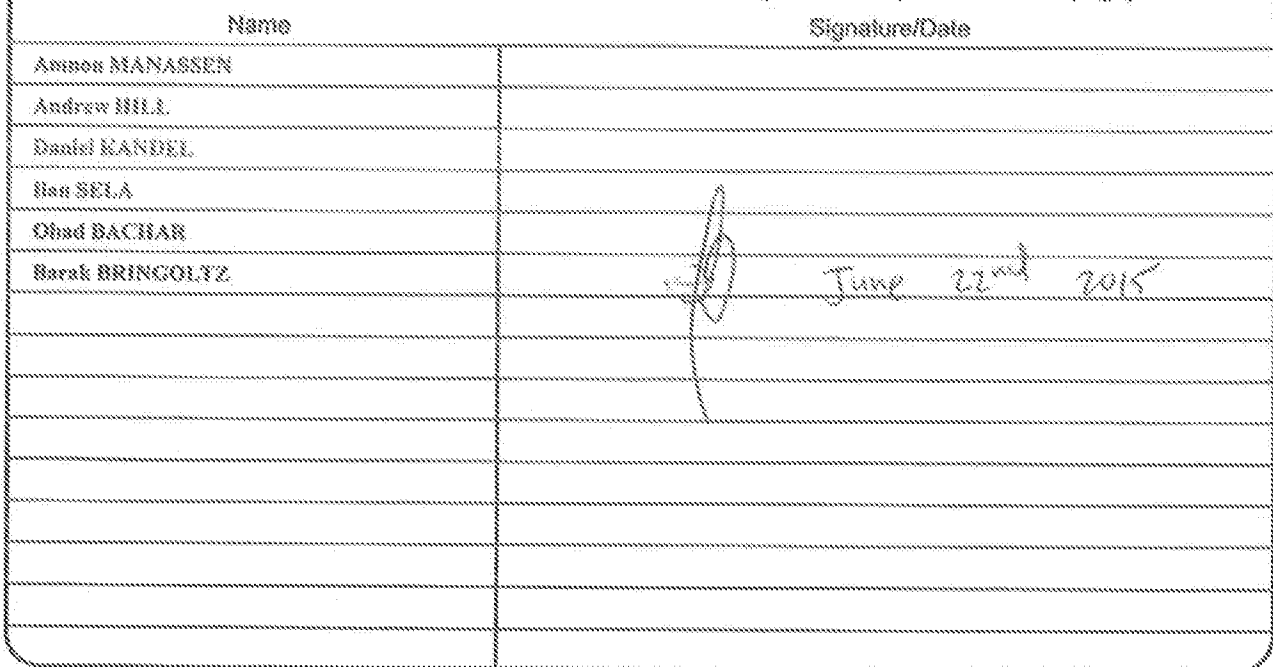 Name Signature/Date
Amnon MANASSEN
Andrew HILL
Daniel KANDEL
Ilan SELA
Ohad BACHAR
Barak BRINGOLTZ June 22nd 2015